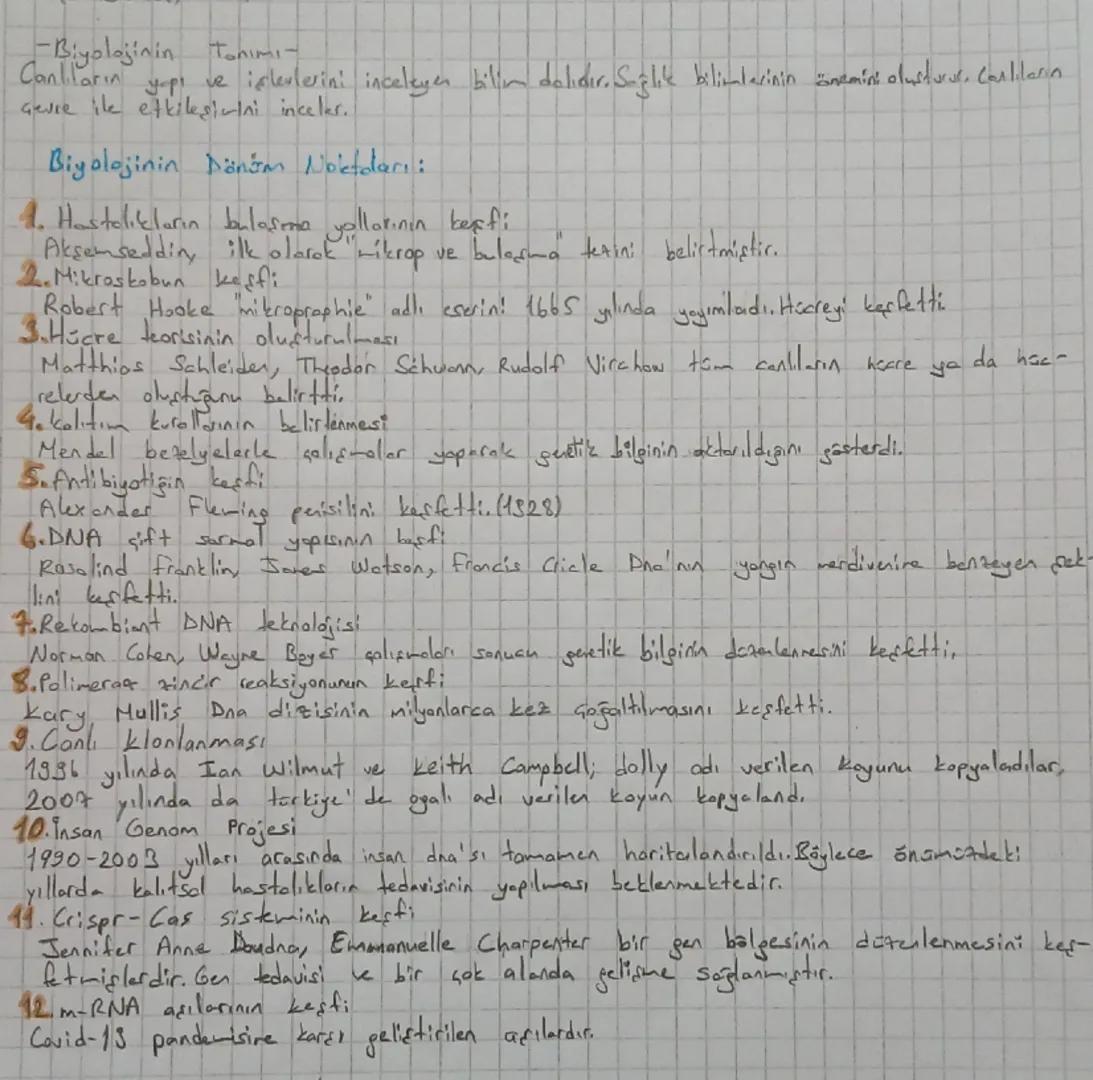 -Biyolojinin Tanımı-
Canlıların yapı ve işlevlerini inceleyen bilim dalıdır. Sağlık bilimlerinin önemini oluşturur. Canlıların
çevre ile etkileşimini inceler.
Biyolojinin Dönüm Noktaları:
1. Hastalıkların bulaşma yollarının keşfi
Akşemseddin, ilk olarak "mikrop ve bulaşma" terini belirtmiştir.
2. Mikroskobun keşfi
Robert Hooke "mikroprophie" adlı eserini 1665 yılında yayımladı. Hücreyi keşfetti
3. Hücre teorisinin oluşturulması
Matthias Schleiden, Theodor Schwann, Rudolf Virchow tüm canlıların hücre ya da hüc-
relerden oluştuğunu belirtti.
4. Kalıtım kurallarının belirlenmesi
Mendel bezelyelerle çalışmalar yaparak genetik bilginin aktarıldığını gösterdi.
5. Antibiyotiğin keşfi
Alexander Fleming penisilini keşfetti. (1928)
6. DNA çift sarmal yapısının keşfi
Rosalind Franklin, James Watson, Francis Dna'nın yangın merdivenine benzeyen şek-
lini keşfetti.
7. Rekombiant DNA teknolojisi
Norman Cohen, Wayne Boyer çalışmaları sonucu genetik bilginin düzenlenmesini keşfetti,
8. Polimeraz zincir reaksiyonunun keşfi
Kary Mullis Dna dizisinin milyonlarca kez çoğaltılmasını keşfetti.
9. Canlı klonlanması
1996 yılında Ian Wilmut ve Keith Campbell; dolly adı verilen koyunu kopyaladılar,
2007 yılında da türkiye'de oyalı adı verilen koyun kopyaland.
10. İnsan Genom Projesi
1990-2003 yılları arasında insan dna'sı tamamen haritalandırıldı. Böylece önümüzdeki
yıllarda kalıtsal hastalıkların tedavisinin yapılması beklenmektedir.
11. Crispr-Cas sisteminin keşfi
Jennifer Anne Doudna, Emmanuelle Charpenter bir gen bölgesinin düzenlenmesini keş-
fetmişlerdir. Gen tedavisi ve bir çok alanda gelişme sağlanmıştır.
12. m-RNA aşılarının keşfi
Covid-19 pandemisine karşı geliştirilen aşılardır.